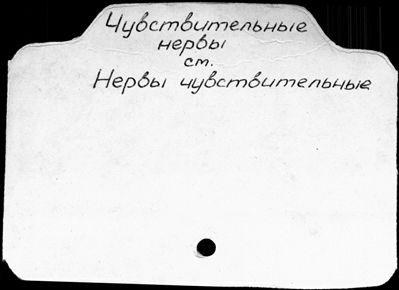 Чувствительные
нервы
см.
Нервы чувствительные